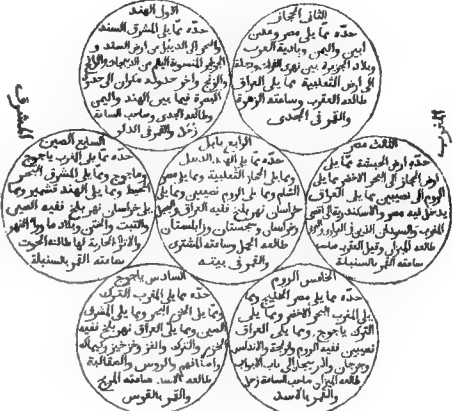 الاول الهند
حدّه ممّا يلى المشرق السند
والبحر الى الديبل من ارض السند و
البصرة فيما بين الهند واليمن
وطالعه الجدى وصاحب الساعة
زحل والقمر فى الدلو
الثانى الحجاز
حدّه ممّا يلى مصر وعدن
ابين واليمن وبادية العرب
وبلاد الجزيرة بين نهرى الفرات ودجلة
الى ارض الثعلبية مما يلى العراق
طالعه العقرب وساعته الزهرة
والقمر فى الجدى
المشرق
المغرب
السابع الصين
حدّه ممّا يلى الغرب ياجوج
وماجوج ومما يلى المشرق البحر
المحيط ومما يلى الهند قشمير ومما
يلى خراسان نهر بلخ ففيه الصين
والتبت والختن وبلاد ما وراء النهر
طالعه الحوت
ساعته القمر بالسنبلة
الرابع بابل
حدّه ممّا يلى الهند الديبل
ومما يلى الحجاز الثعلبية ومما يلى مصر
الشام ومما يلى الروم نصيبين ومما يلى
خراسان نهر بلخ ففيه العراق والجبل
وخراسان وسجستان وزابلستان
طالعه الحمل وساعته المشترى
والقمر فى بيته
الثالث مصر
حدّه ارض الحبشة ممّا يلى
ارض الحجاز الى البحر الاخضر مما يلى
الروم الى نصيبين مما يلى العراق
يدخل فيه مصر والاسكندرية الى اقصى
المغرب والسودان
ساعته القمر بالسنبلة
السادس ياجوج
حدّه ممّا يلى المغرب الترك
ومما يلى الخزر البحر ومما يلى المشرق
الصين ومما يلى العراق نهر بلخ ففيه
الخزر والترك والغز وخرخيز وكيماك
والروس والصقالبة
طالعه الاسد ساعته المريخ
والقمر بالقوس
الخامس الروم
حدّه ممّا يلى مصر الخليج ومما
يلى المغرب البحر الاخضر ومما يلى
الترك ياجوج ومما يلى العراق
نصيبين ففيه الروم وفرنجة والاندلس
وجرجان واذربيجان الى باب الابواب
طالعه الميزان صاحب الساعة زحل
والقمر بالاسد